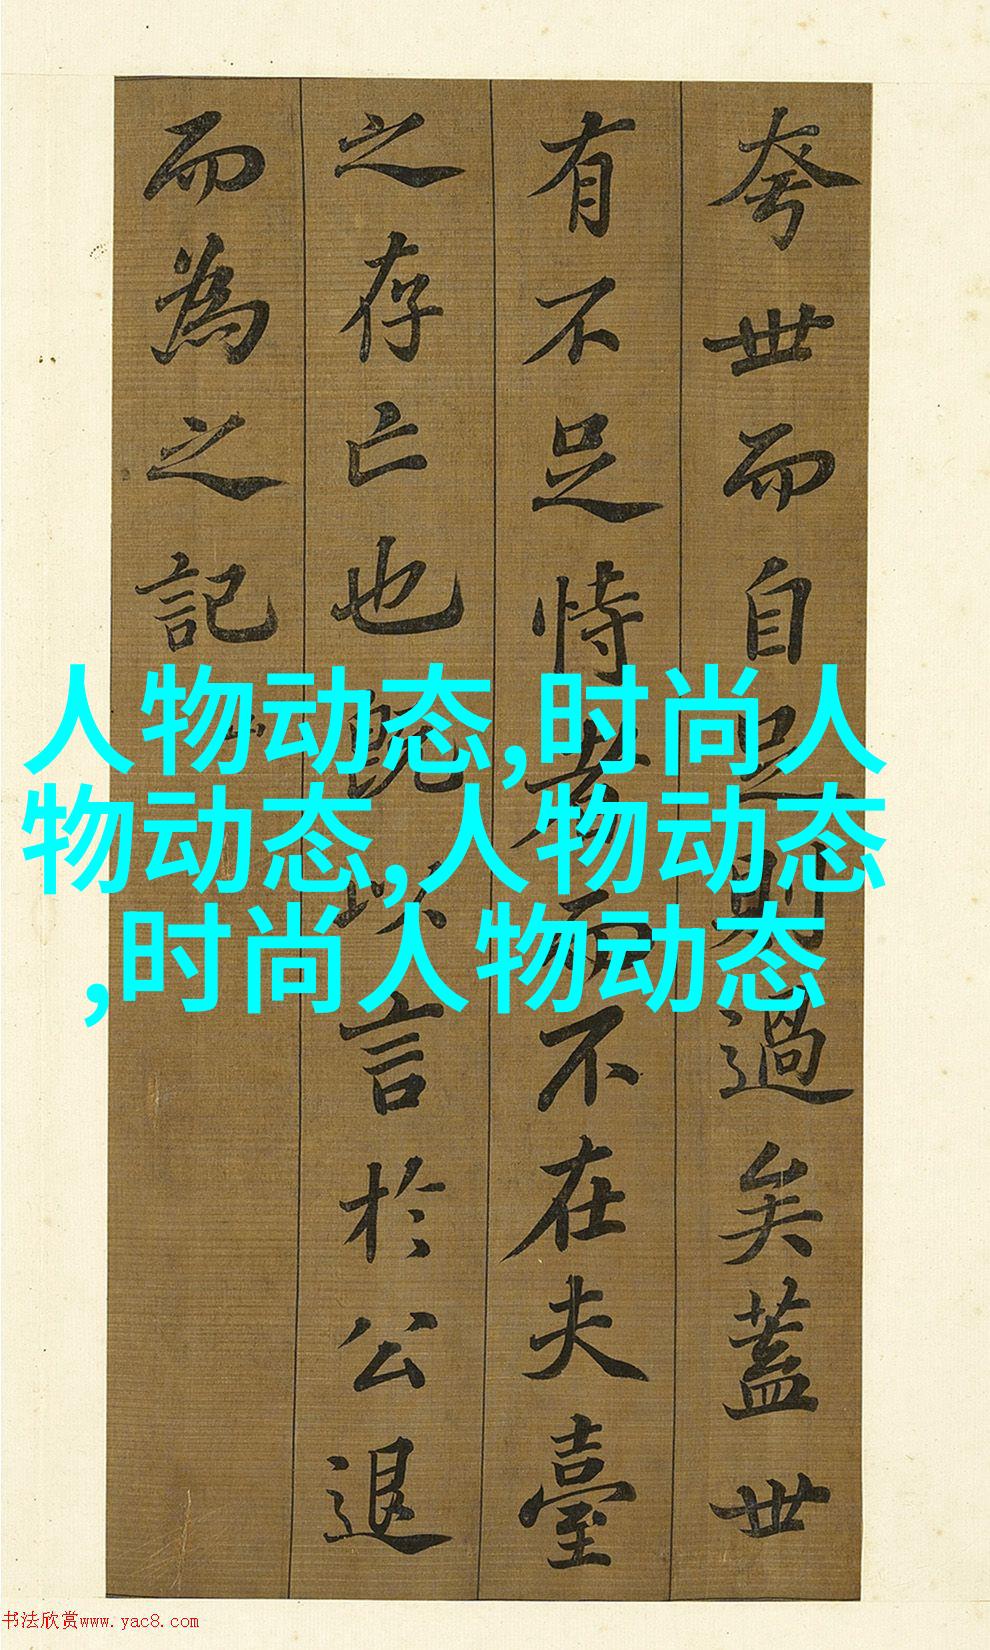 夸世而自足則過矣蓋世
有不足恃者而不在夫臺
之存亡也既以言於公退
而為之記
人物动态,时尚人
物动态,人物动态
,时尚人物动态
书法欣赏www.yac8.com